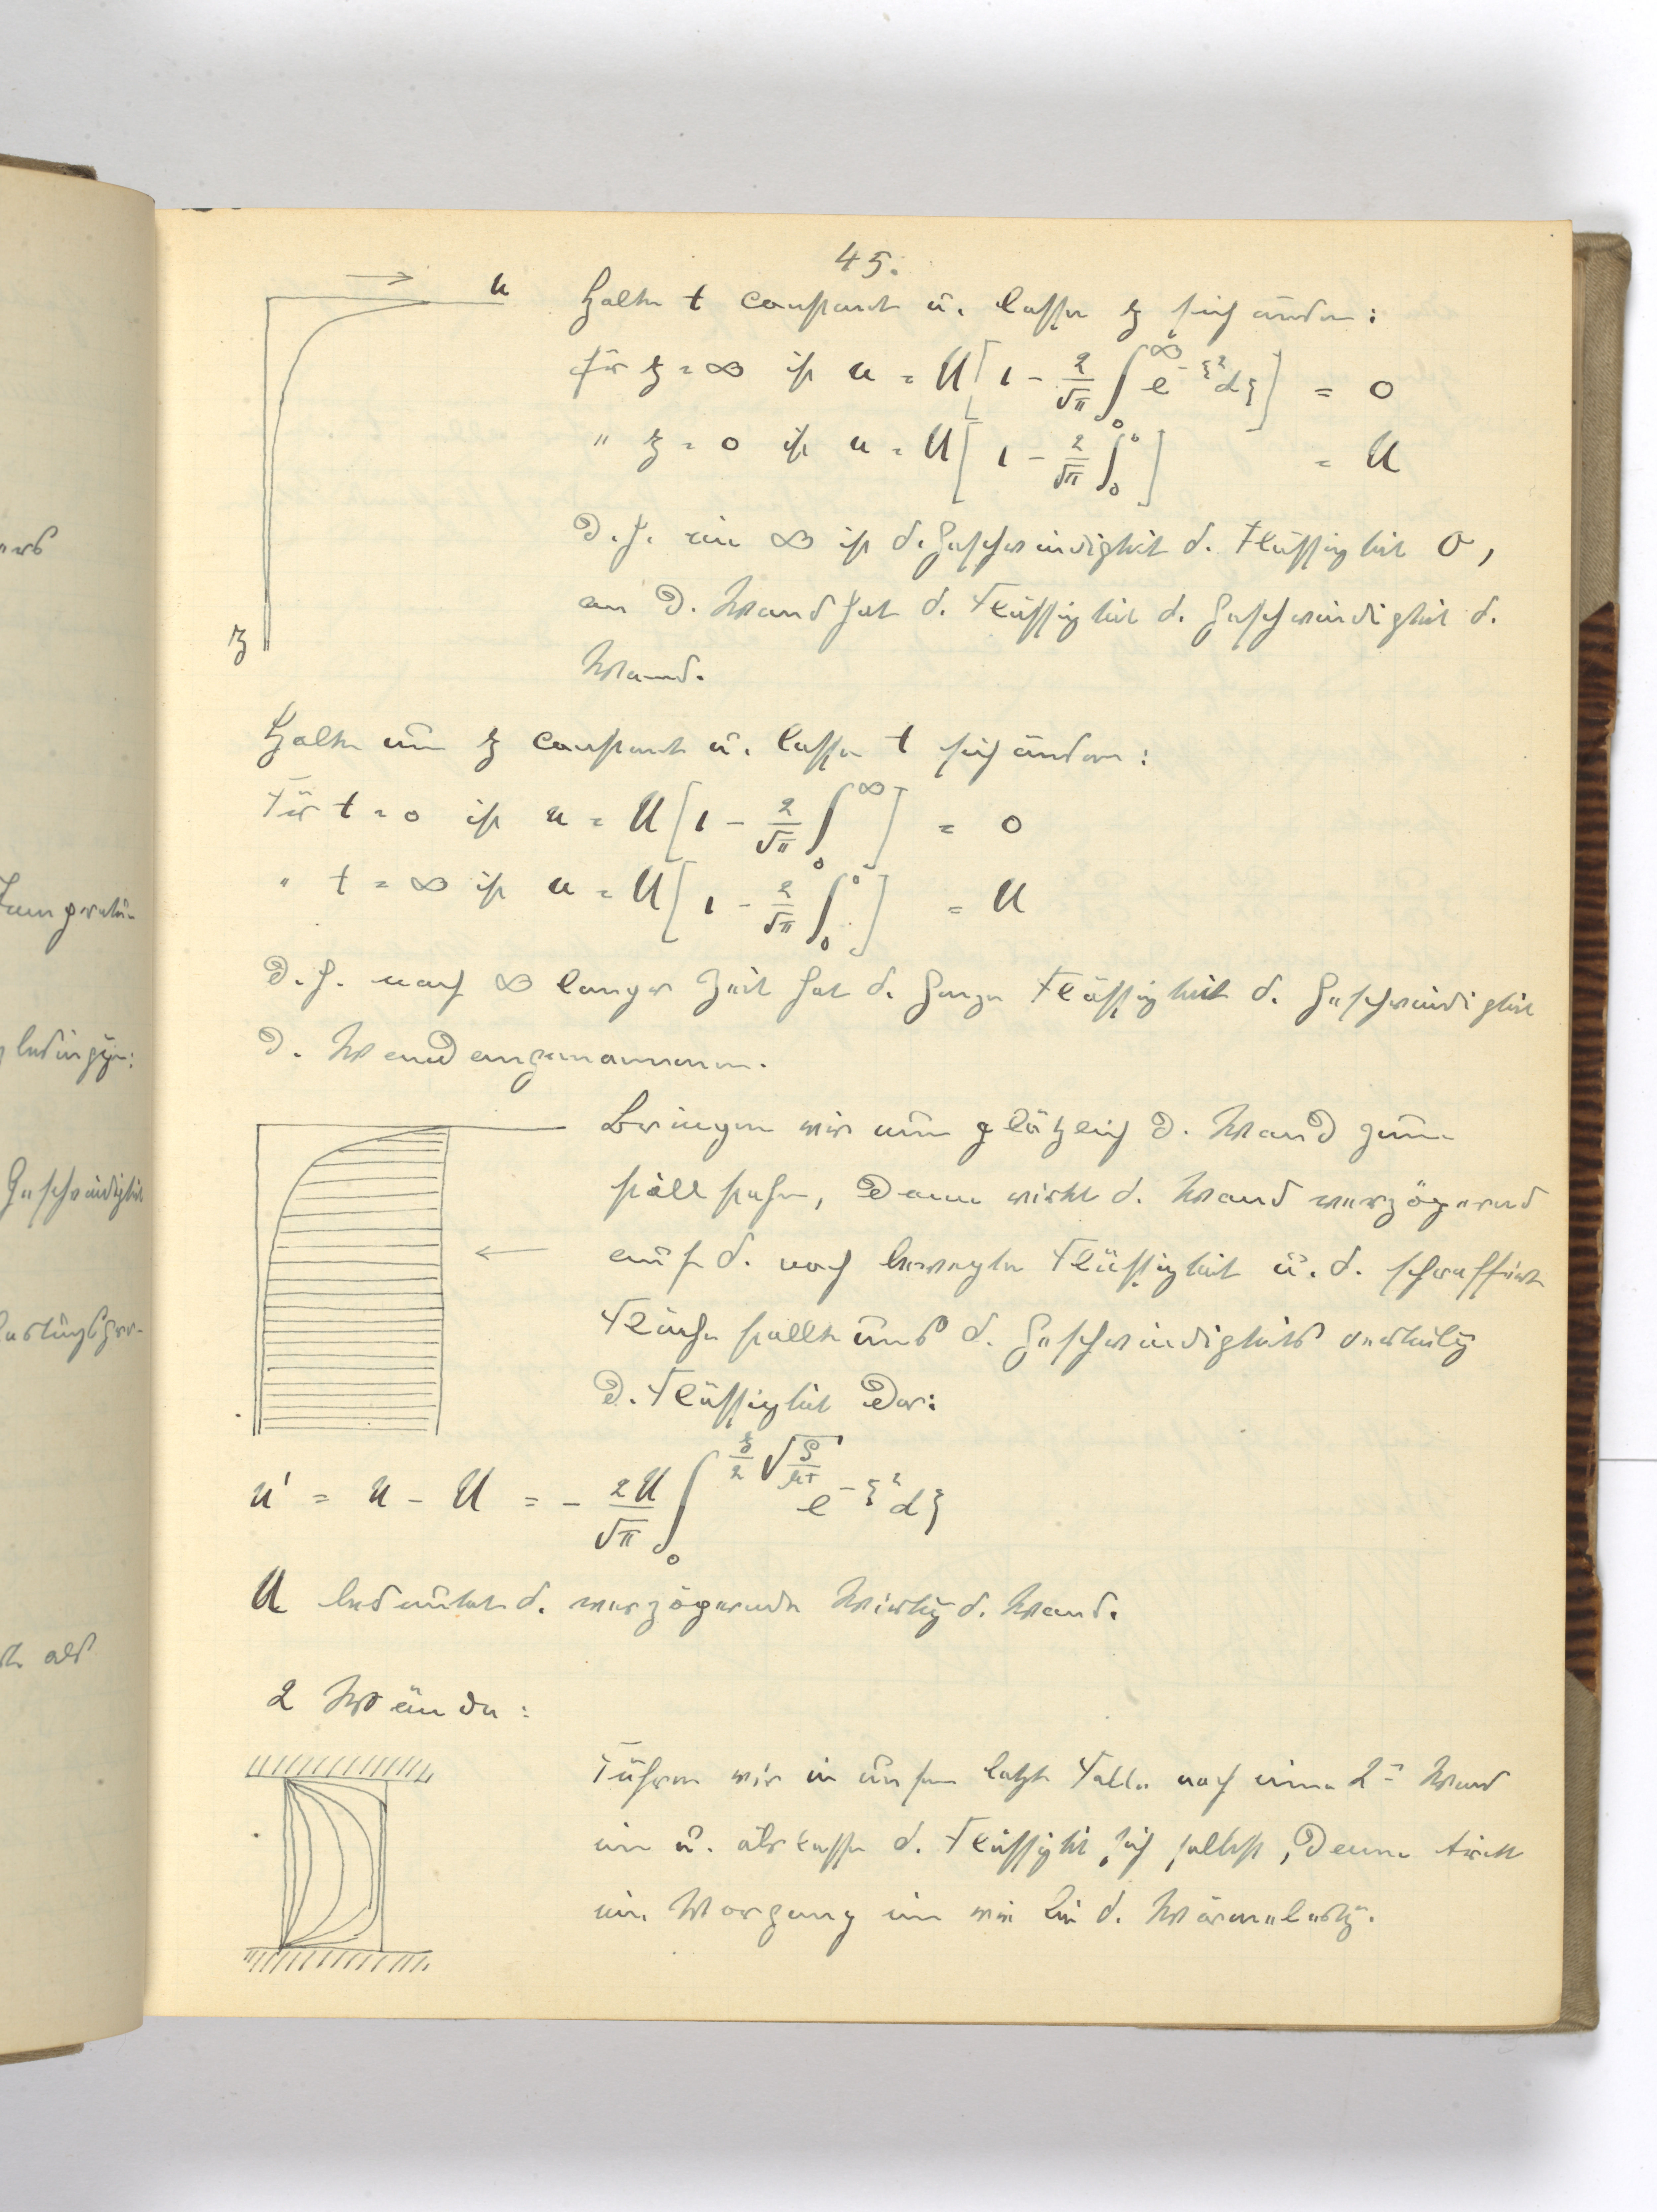 45.
u
z
Halte t constant u. lasse z sich ändern:
für z = ∞ ist u = U[1 - 2/√π ∫₀^∞ e^(-ξ²) dξ] = 0
" z = 0 ist u = U[1 - 2/√π ∫₀⁰] = U
D. h. im ∞ ist d. Geschwindigkeit d. Flüssigkeit 0,
an d. Wand hat d. Flüssigkeit d. Geschwindigkeit d.
Wand.
Halte nun z constant u. lasse t sich ändern:
Für t = 0 ist u = U[1 - 2/√π ∫₀^∞] = 0
" t = ∞ ist u = U[1 - 2/√π ∫₀⁰] = U
D. h. nach ∞ langer Zeit hat d. ganze Flüssigkeit d. Geschwindigkeit
d. Wand angenommen.
Bringen wir nun plötzlich d. Wand zum
stillstehen, dann wirkt d. Wand verzögernd
auf d. noch bewegte Flüssigkeit u. d. schraffierte
Fläche stellt uns d. Geschwindigkeits verteilg
d. Flüssigkeit dar:
u' = u - U = - 2U/√π ∫₀^(z/2 √(ρ/μt)) e^(-ξ²) dξ
U bedeutet d. verzögernde Wirkg d. Wand.
2 Wände:
Führen wir in unserm letzt Falle noch eine 2te Wand
ein u. überlassen d. Flüssigkt sich selbst, dann tritt
ein Vorgang ein wie bei d. Wärmeleitg.